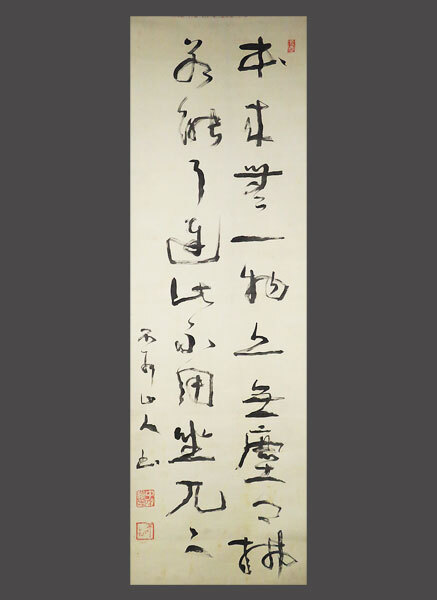 本来無一物亦無塵可拂
若能了達此不用坐兀々
山人書